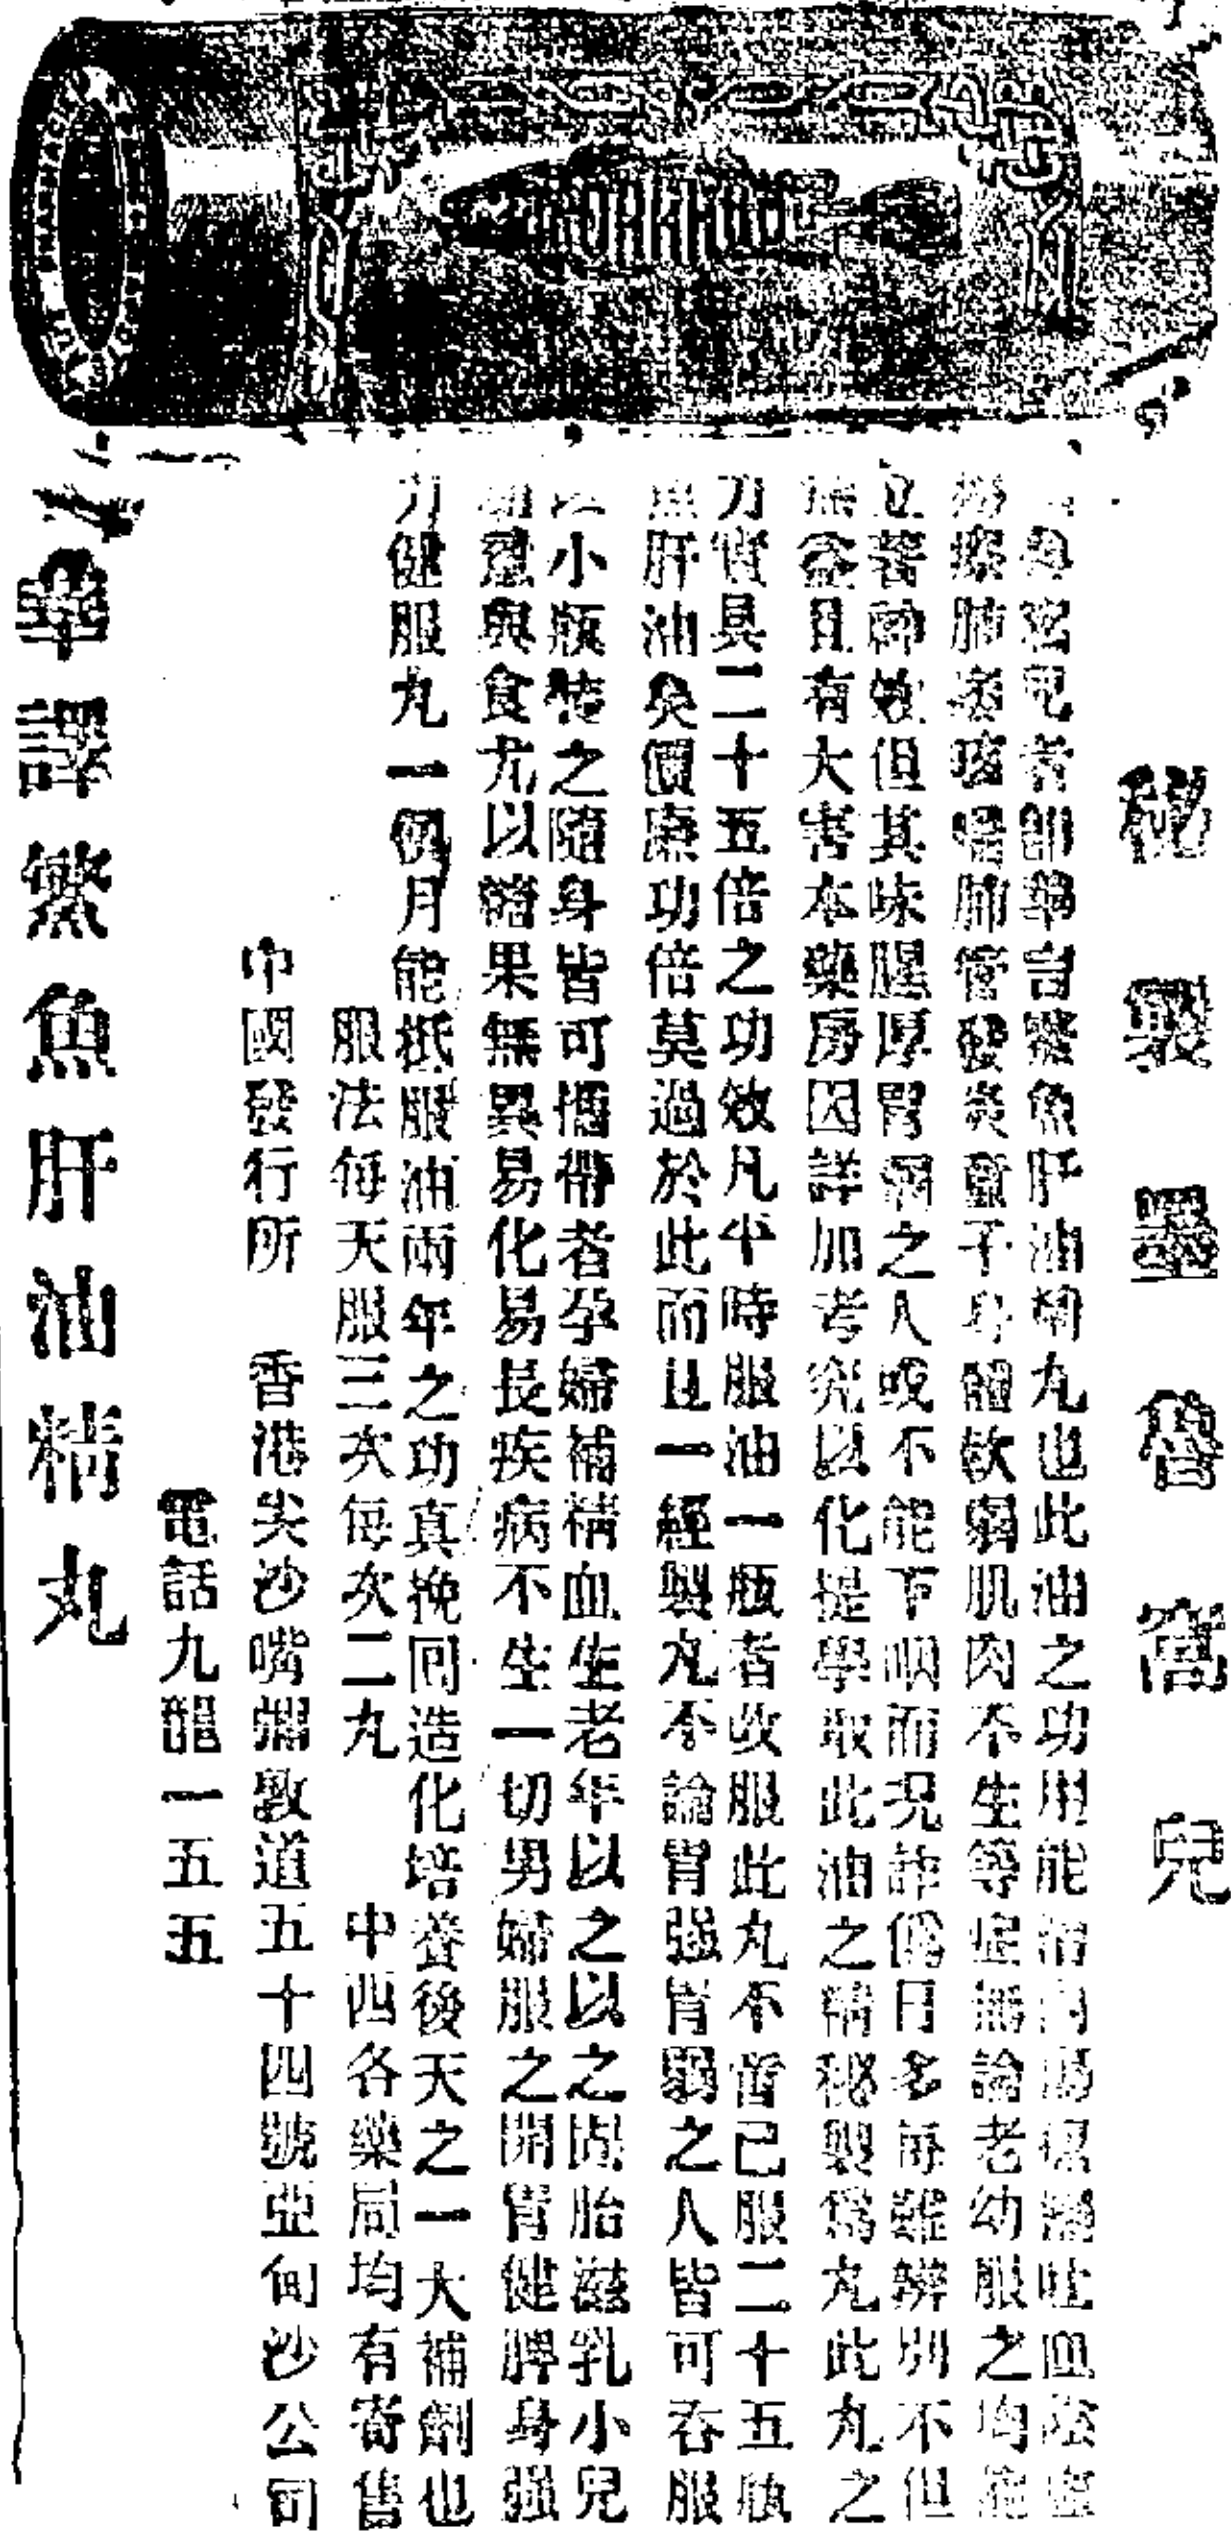 秘製墨魯窩兒
墨魯窩兒者即華言鰵魚肝油精丸也此油之功用能治內傷癆瘵吐血陰虛
癆瘵肺萎咳嗽肺管發炎童子身體軟弱肌肉不生等症無論老幼服之均能
立著神效但其味腥厚胃弱之人或不能下咽而況詐偽日多每難辨別不但
無益且有大害本藥房因詳加考究以化提學取此油之精秘製為丸此丸之
力實具二十五倍之功效凡平時服油一瓶者改服此丸不啻已服二十五瓶
魚肝油矣價廉功倍莫過於此而且一經製丸不論胃强胃弱之人皆可吞服
以小瓶裝之隨身皆可攜帶者孕婦補精血生老年以之以之固胎滋乳小兒
與食尤以諸果無異易化易長疾病不生一切男婦服之開胃健脾身强
力健服丸一個月能抵服油兩年之功真挽回造化培養後天之一大補劑也
服法每天服三次每次二丸　中西各藥局均有寄售
中國發行所　香港尖沙嘴彌敦道五十四號亞旬沙公司
電話九龍一五五
華譯繁魚肝油精丸